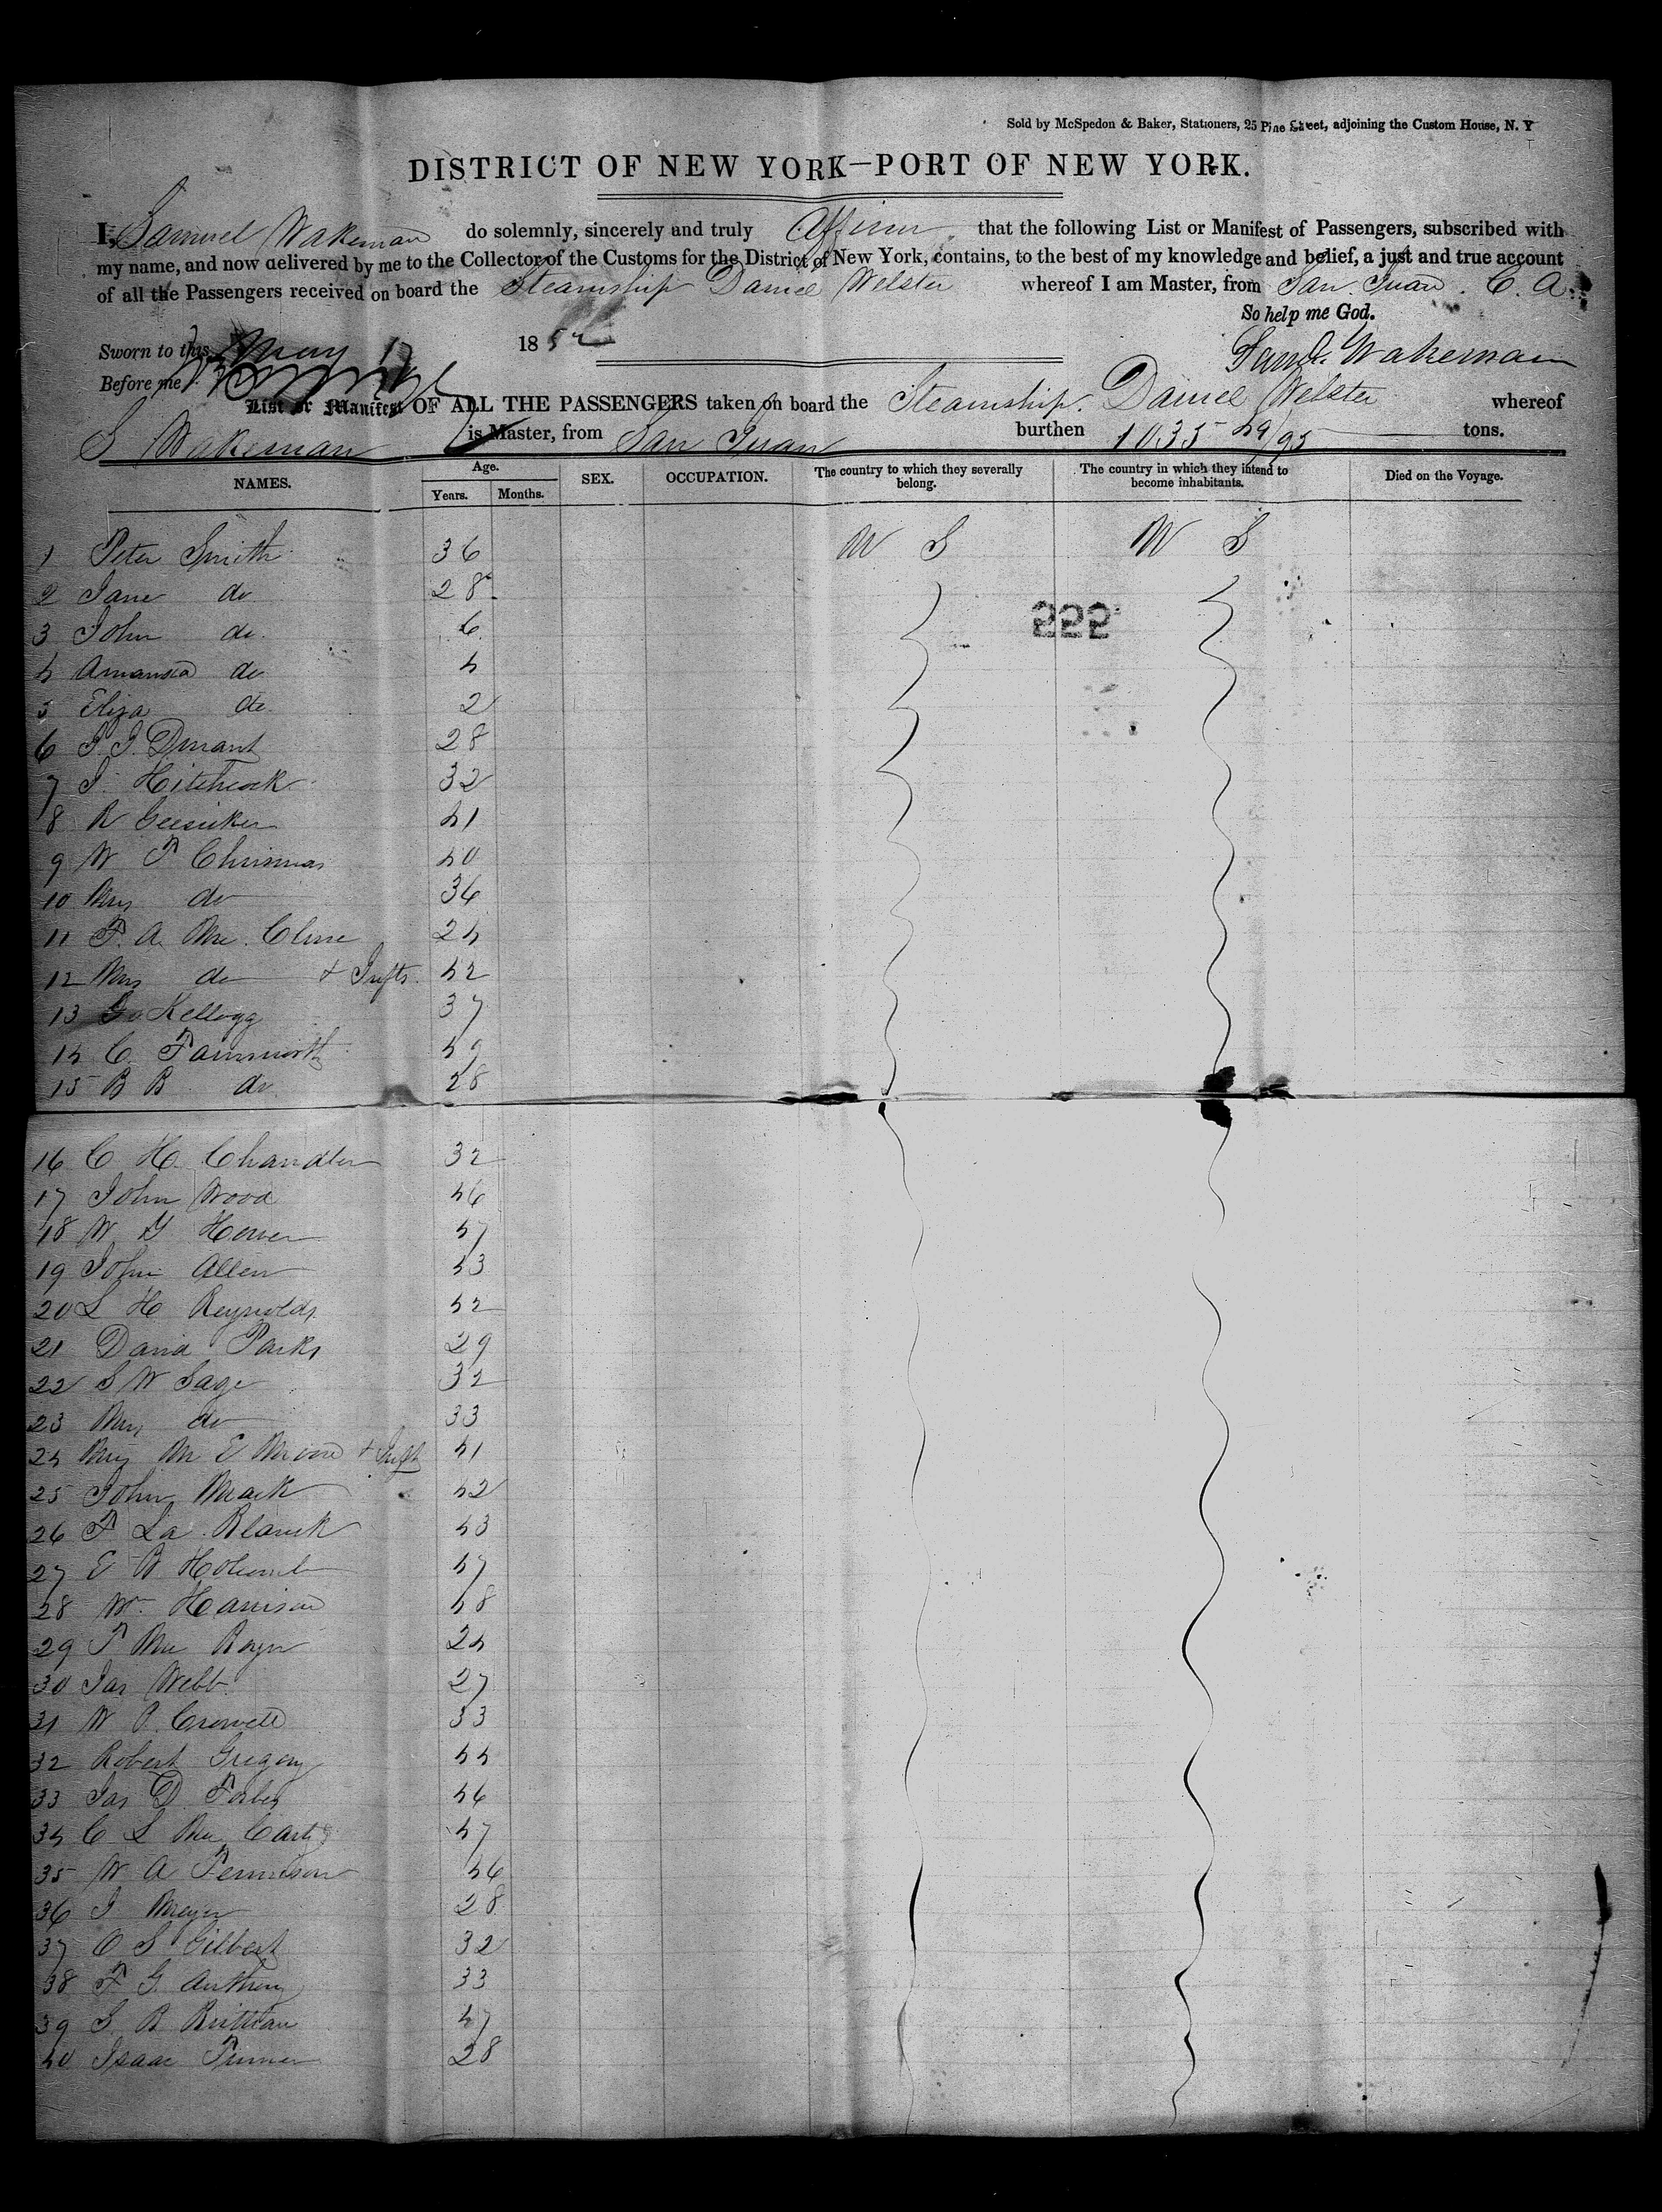 Sold by McSpedon & Baker, Stationers, 25 Pine Street, adjoining the Custom House, N. Y
DISTRICT OF NEW YORK—PORT OF NEW YORK.
I, Samuel Wakeman do solemnly, sincerely and truly Affirm that the following List or Manifest of Passengers, subscribed with
my name, and now delivered by me to the Collector of the Customs for the District of New York, contains, to the best of my knowledge and belief, a just and true account
of all the Passengers received on board the Steamship Daniel Webster whereof I am Master, from San Juan. C. A.
So help me God.
Sworn to this May 17 1852
Saml. Wakeman
Before me
List or Manifest OF ALL THE PASSENGERS taken on board the Steamship. Daniel Webster whereof
S Wakeman is Master, from San Juan burthen 1035 49/95 tons.
NAMES. Age. Years. Months. SEX. OCCUPATION. The country to which they severally belong. The country in which they intend to become inhabitants. Died on the Voyage.
1 Peter Smith 36 U S U S
2 Jane do 28
222
3 John do. 6
4 Amanda do 4
5 Eliza do 2
6 J. J. Durant 28
7 J. Hitchcock 32
8 R 41
9 W F Chrismas 40
10 Mrs do 36
11 F. A. Mc. Clure 24
12 Mrs do & Infts. 42
13 Kellogg 37
14 C. Farnsworth 49
15 B B do 28
16 C H. Chandler 32
17 John Wood 46
18 W G Hower 47
19 John Allen 43
20 L H Reynolds 42
21 David Parks 29
22 S W Sage 32
23 Mrs do 33
24 Mrs M E Moore & Inft 41
25 John Mack 42
26 F La Blanck 43
27 E B Holcomb 47
28 Wm Harrison 48
29 F Mc 24
30 Jas Webb 27
31 W P. Crowell 33
32 Robert Gregory 44
33 Jas D Forbes 46
34 C L Mc Carty 47
35 W A Fennison 46
36 J Meyer 28
37 O S Gilbert 32
38 F G. Anthony 33
39 S. B Brittian 47
40 Isaac 28